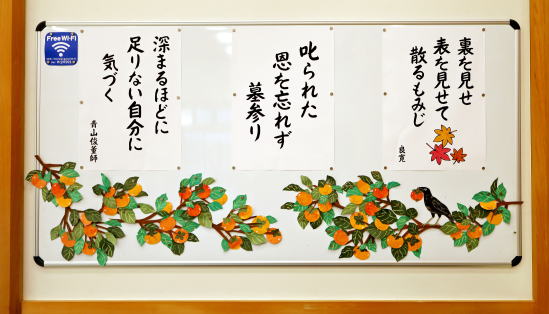 裏を見せ
表を見せて
散るもみじ
良寛
叱られた
恩を忘れず
墓参り
深まるほどに
足りない自分に
気づく
青山俊董師
Free Wi-Fi